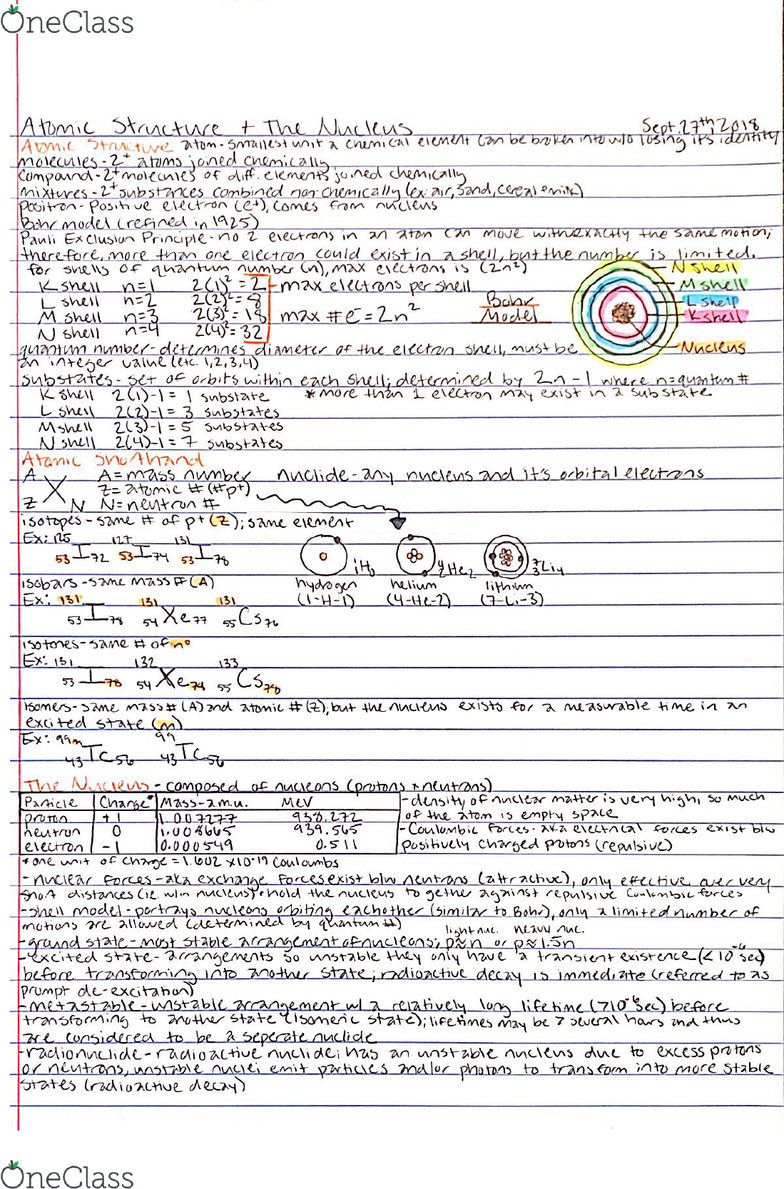 OneClass
Atomic Structure + The Nucleus
Sept. 27th, 2018
Atomic Structure atom - smallest unit a chemical element can be broken into w/o losing it's identity
molecules - 2+ atoms joined chemically
compound - 2+ molecules of diff. elements joined chemically
mixtures - 2+ substances combined non-chemically (ex: air, sand, cereal + milk)
Positron - positive electron (e+), comes from nucleus
Bohr model (refined in 1925)
Pauli Exclusion Principle - no 2 electrons in an atom can move with exactly the same motion;
therefore, more than one electron could exist in a shell, but the number is limited.
for shells of quantum number (n), max electrons is (2n²)
K shell n=1 2(1)²=2 - max electrons per shell
L shell n=2 2(2)²=8
M shell n=3 2(3)²=18 max # e⁻=2n²
N shell n=4 2(4)²=32
Bohr
Model
N shell
M shell
L shell
K shell
Nucleus
quantum number - determines diameter of the electron shell, must be
an integer value (etc. 1,2,3,4)
substates - set of orbits within each shell; determined by 2n-1 where n=quantum #
K shell 2(1)-1 = 1 substate *more than 1 electron may exist in a substate
L shell 2(2)-1 = 3 substates
M shell 2(3)-1 = 5 substates
N shell 2(4)-1 = 7 substates
Atomic Shorthand
A X Z N
A = mass number nuclide - any nucleus and it's orbital electrons
Z = atomic # (#p+)
N = neutron #
isotopes - same # of p+ (Z); same element
Ex: 125 127 131
53 I 72 53 I 74 53 I 78
1H0 4He2 7Li4
hydrogen helium lithium
(1-H-1) (4-He-2) (7-Li-3)
isobars - same mass # (A)
Ex: 131 131 131
53 I 78 54 Xe 77 55 Cs 76
isotones - same # of n°
Ex: 131 132 133
53 I 78 54 Xe 78 55 Cs 78
isomers - same mass # (A) and atomic # (Z), but the nucleus exists for a measurable time in an
excited state (m)
Ex: 99m 99
43 Tc 56 43 Tc 56
The Nucleus - composed of nucleons (protons + neutrons)
Particle Charge* Mass-a.m.u. MeV
proton +1 1.007277 938.272
neutron 0 1.008665 939.565
electron -1 0.000549 0.511
- density of nuclear matter is very high, so much
of the atom is empty space
- Coulombic forces - aka electrical forces exist b/w
positively charged protons (repulsive)
*one unit of charge = 1.602 x10-19 Coulombs
- nuclear forces - aka exchange forces exist b/w neutrons (attractive), only effective over very
short distances (ie w/in nucleus) + hold the nucleus together against repulsive Coulombic forces
- shell model - portrays nucleons orbiting eachother (similar to Bohr), only a limited number of
motions are allowed (determined by quantum #)
light nuc. heavy nuc.
- ground state - most stable arrangement of nucleons; p≈n or p≈1.5n
- excited state - arrangements so unstable they only have a transient existence (<10⁻⁶ sec)
before transforming into another state; radioactive decay is immediate (referred to as
prompt de-excitation)
- metastable - unstable arrangement w/ a relatively long lifetime (>10⁻⁶ sec) before
transforming to another state (isomeric state); lifetimes may be > several hours and thus
are considered to be a seperate nuclide
- radionuclide - radioactive nuclide; has an unstable nucleus due to excess protons
or neutrons, unstable nuclei emit particles and/or photons to transform into more stable
states (radioactive decay)
OneClass